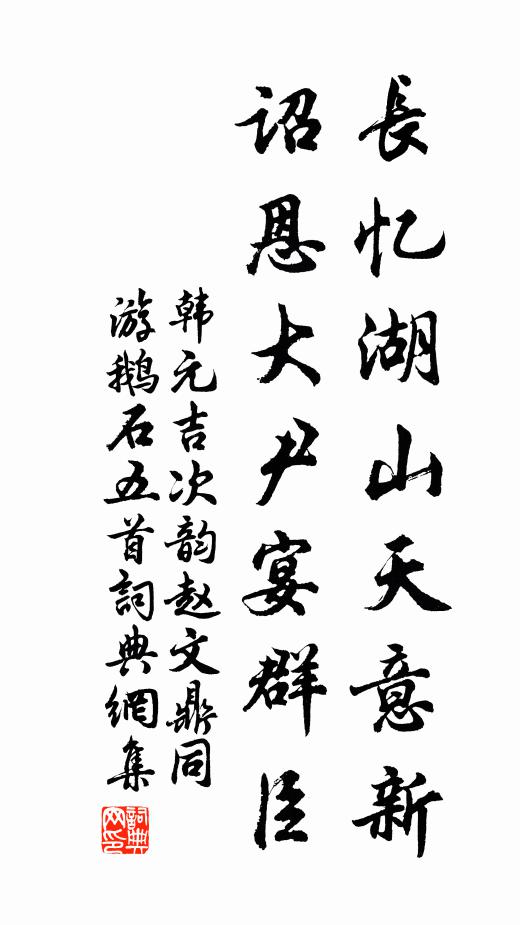 長忆湖山天意新
诏恩大尹宴群臣
韩元吉次韵赵文鼎同
游鹅石五首詞典網集
詞典网印